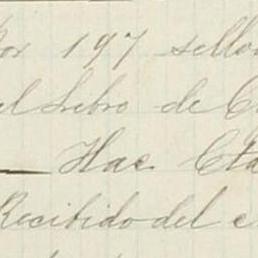 Por 197 sellos
el Libro de C
Hac. Cta
Recibido del c